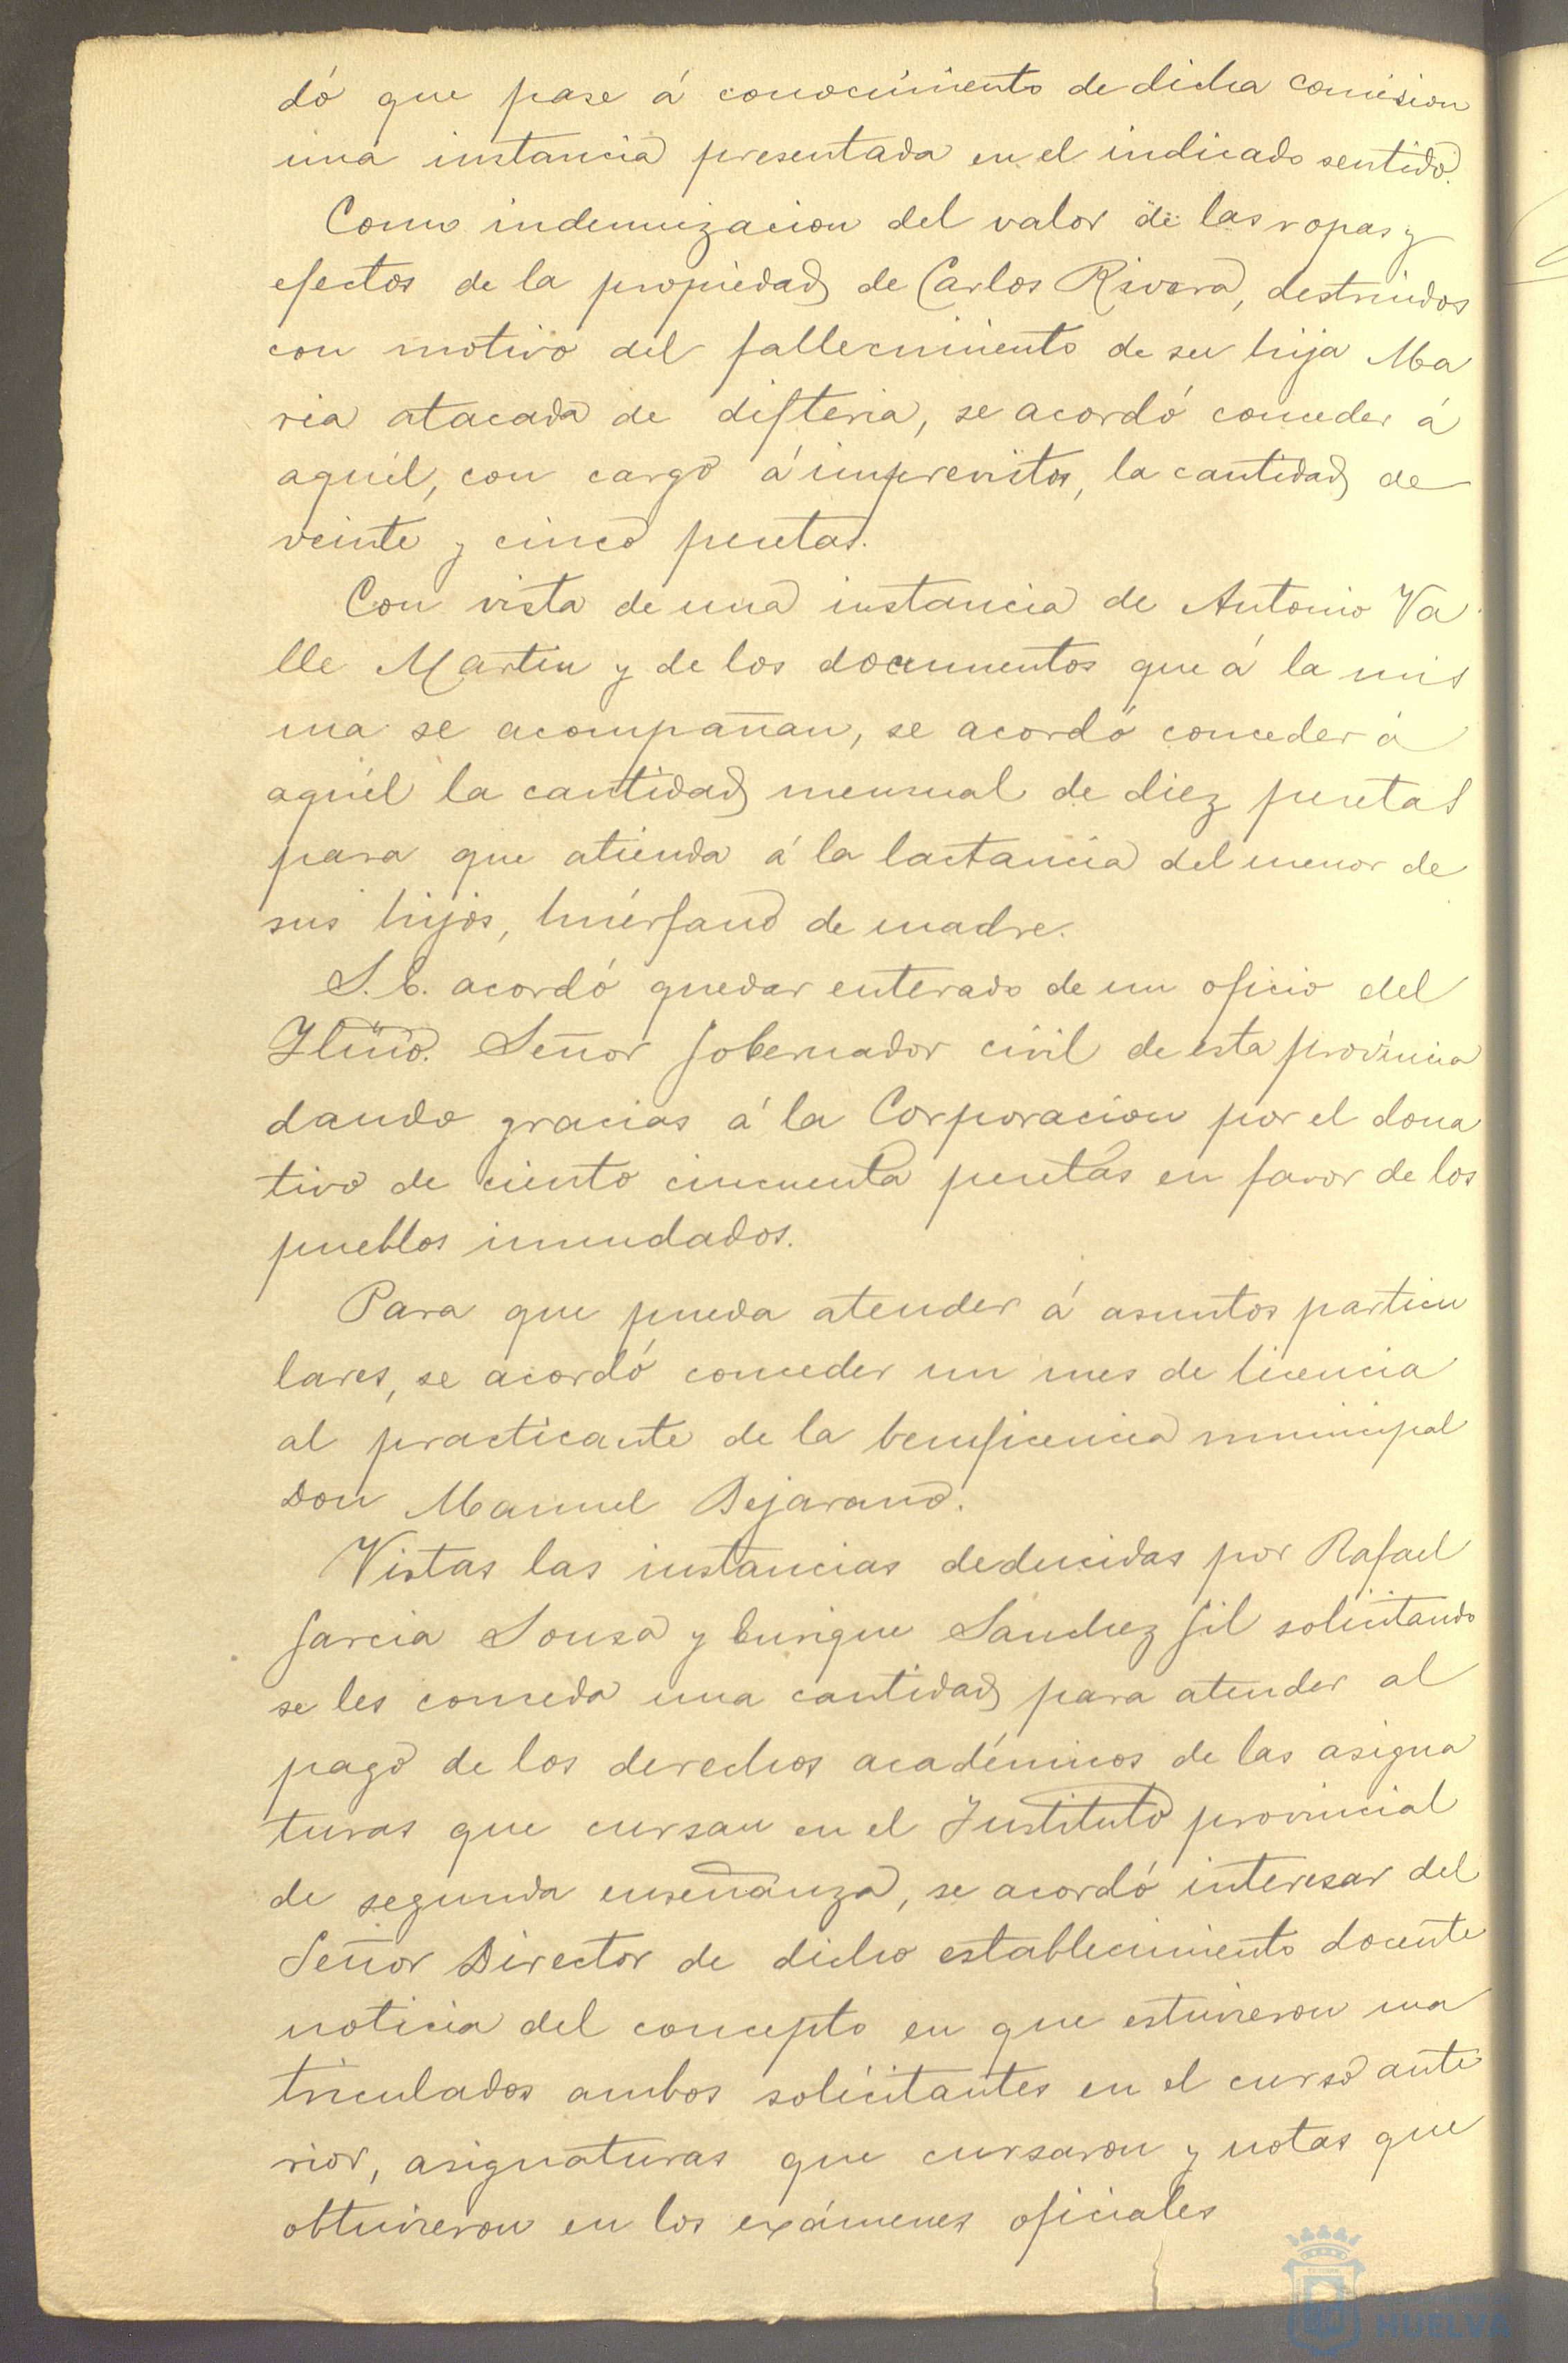 dó que pase á conocimiento de dicha comision
una instancia presentada en el indicado sentido.
Como indemnizacion del valor de las ropas y
efectos de la propiedad de Carlos Rivera, destruidos
con motivo del fallecimiento de su hija Ma
ria atacada de difteria, se acordó conceder á
aquél, con cargo á imprevistos, la cantidad de
veinte y cinco pesetas.
Con vista de una instancia de Antonio Va
lle Martin y de los documentos que á la mis
ma se acompañan, se acordó conceder á
aquél la cantidad mensual de diez pesetas
para que atienda á la lactancia del menor de
sus hijos, huérfano de madre.
S. E. acordó quedar enterado de un oficio del
Iltmo. Señor Gobernador civil de esta provincia
dando gracias á la Corporacion por el dona
tivo de ciento cincuenta pesetas en favor de los
pueblos inundados.
Para que pueda atender á asuntos particu
lares, se acordó conceder un mes de licencia
al practicante de la beneficencia municipal
Don Manuel Bejarano.
Vistas las instancias deducidas por Rafael
Garcia Sousa y Enrique Sanchez Gil solicitando
se les conceda una cantidad para atender al
pago de los derechos académicos de las asigna
turas que cursan en el Instituto provincial
de segunda enseñanza, se acordó interesar del
Señor Director de dicho establecimiento docente
noticia del concepto en que estuvieron ma
triculados ambos solicitantes en el curso ante
rior, asignaturas que cursaron y notas que
obtuvieron en los exámenes oficiales
HUELVA